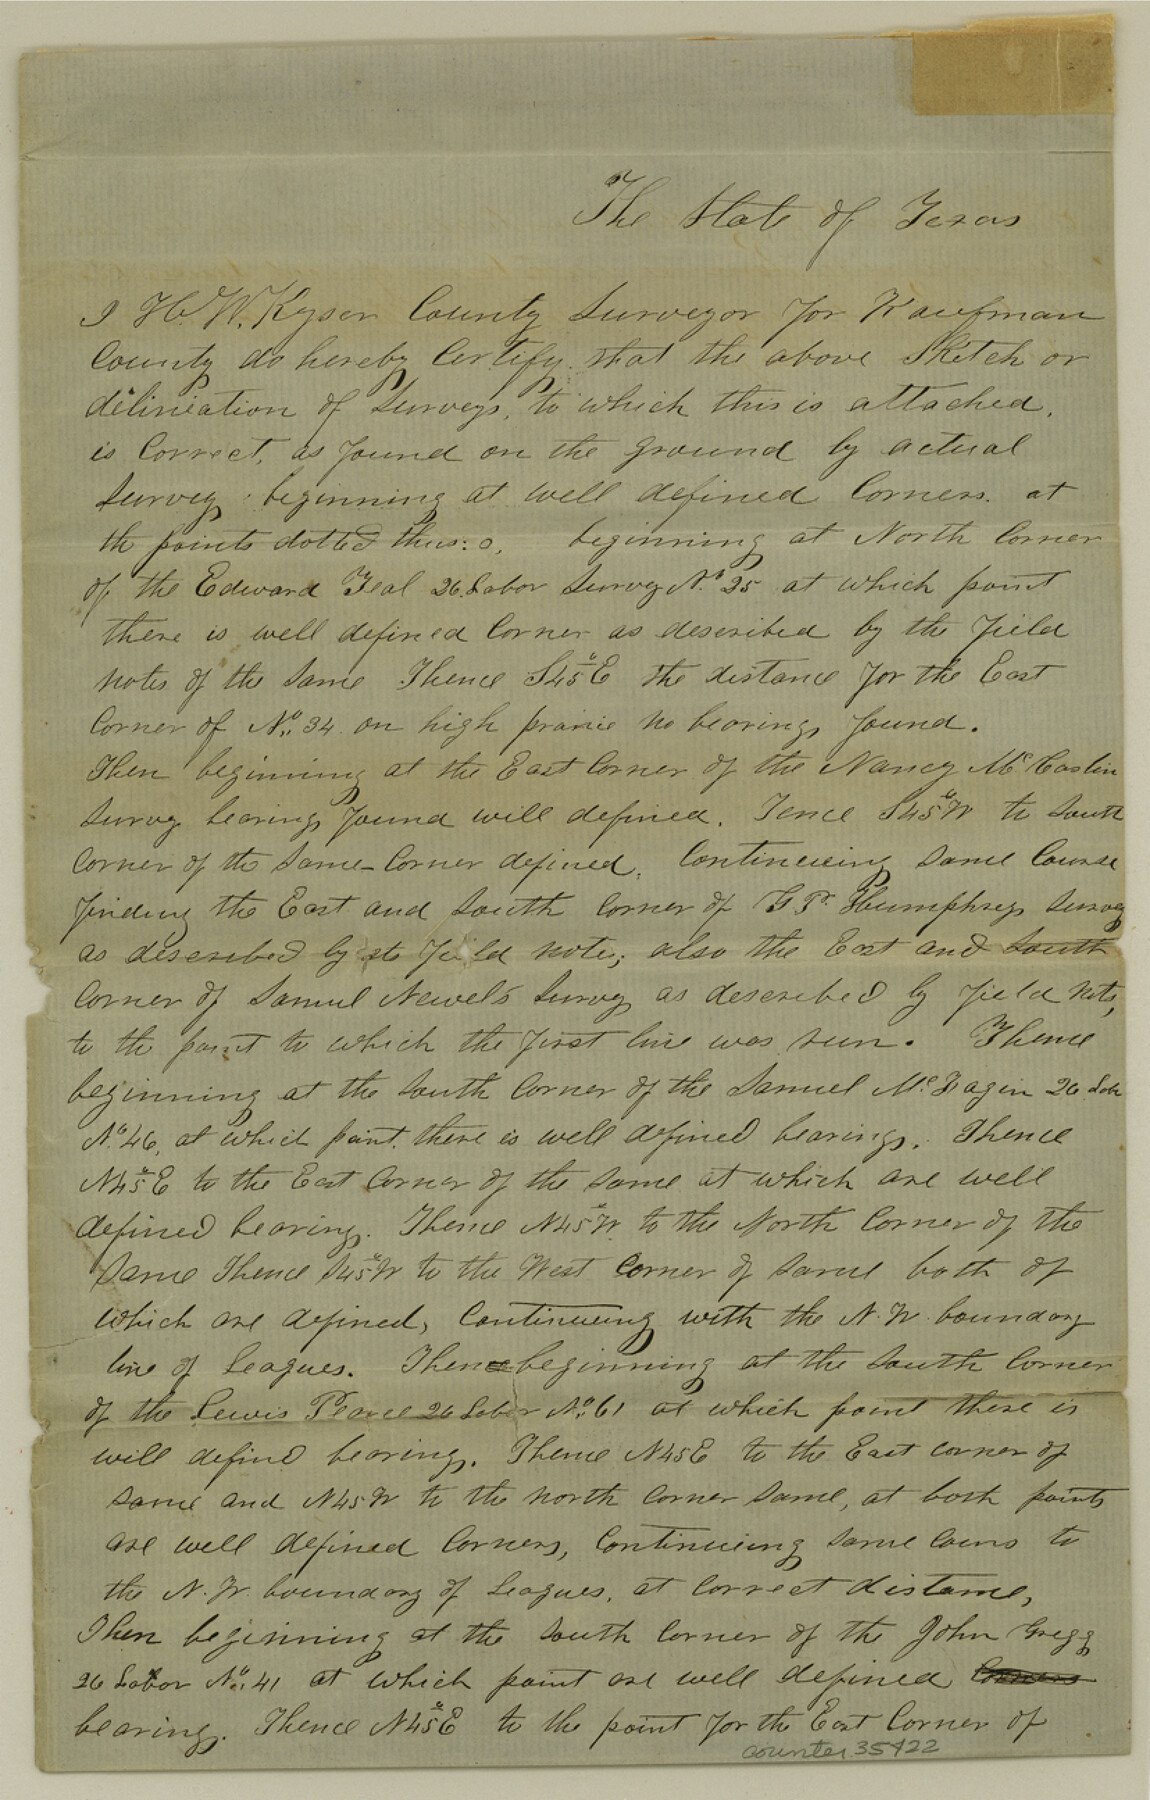 The State of Texas
I H. W. Kyser County Surveyor for Kaufman
County do hereby Certify that the above Sketch or
delineation of Surveys, to which this is attached,
is Correct, as found on the ground by actual
Survey beginning at well defined Corners. at
the points dotted thus: o, beginning at North Corner
of the Edward Teal 26 Labor Survey No. 25 at which point
there is well defined Corner as described by the field
notes of the Same Thence S45°E the distance for the East
Corner of No. 34 on high prairie no bearings found.
Then beginning at the East Corner of the Nancy McCaslin
Survey bearings found will defined. Tence S45°W to South
Corner of the Same - Corner defined, Continueing Same Course
finding the East and South Corner of Humphreys Survey
as described by its field notes; also the East and South
Corner of Samuel Newel's Survey as described by field nots,
to the point to which the first line was run. Thence
beginning at the South Corner of the Samuel McFagin 26 Labr
No. 46, at which point there is well defined bearings. Thence
N45°E to the East Corner of the Same at which are well
defined bearings. Thence N45°W. to the North Corner of the
Same Thence S45°W to the West Corner of Same both of
which are defined, Continuing with the N. W. boundary
line of Leagues. Then beginning at the South Corner
of the Lewis Pearce 26 Labor No. 61 at which point there is
will defind bearings. Thence N45E to the East corner of
Same and N45W to the North Corner Same, at both points
are well defined Corners, Continueing Same Cours to
the N. W. boundary of Leagues, at correct distame,
Then beginning at the South Corner of the John Gregg
26 Labor No. 41 at which point are well defined Corners
bearings. Thence N45°E to the point for the East Corner of
counter 35422